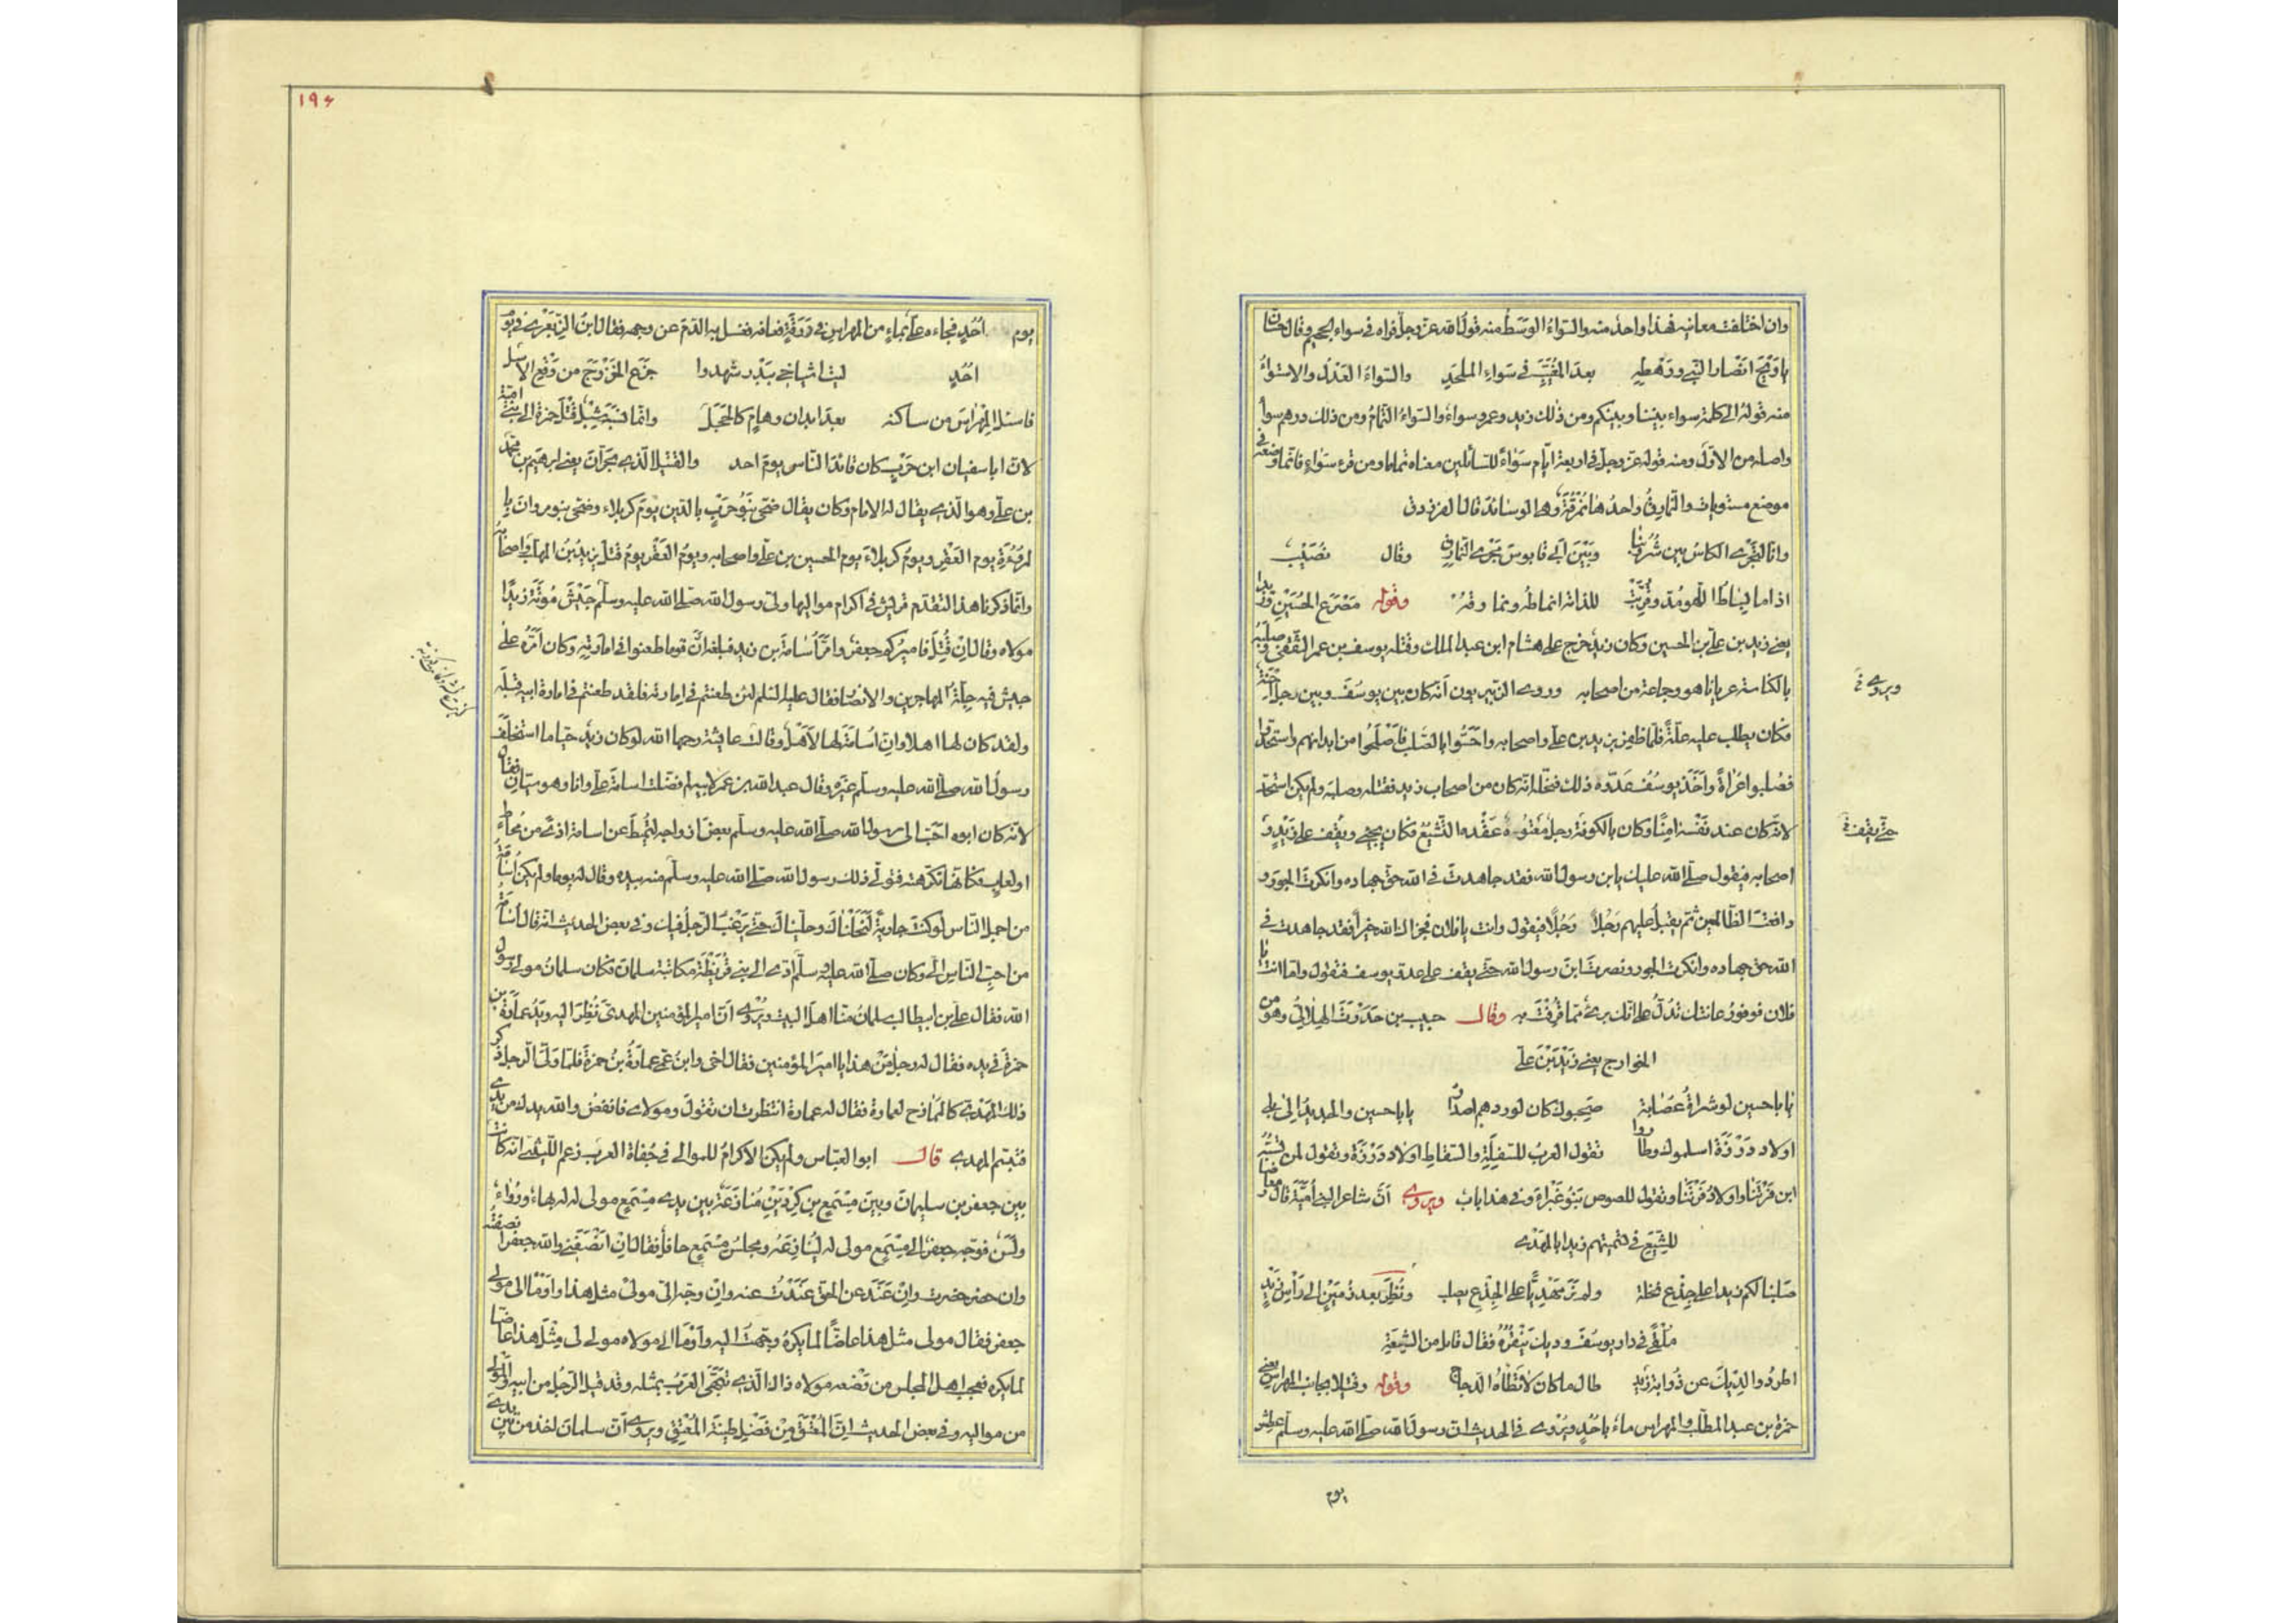 وان اختلفت معانيه فهذا واحد منه والسّواءُ الوَسَطُ منه قول الله عزّ وجلّ فراه فى سواء الجحيم وقال حسّان
يا وَيْحَ انصار النّبى وَرَهْطِهِ بعدَ المُغَيَّبِ فى سَواءِ المُلْحَدِ والسّواءُ العَدْلُ والاستواءُ
منه قولهُ الى كلمة سواء بيننا وبينكم ومن ذٰلك زيد وعمرو سواءٌ والسّواءُ التّمامُ ومن ذلك درهم سواءٌ
واصله من الاوّل ومنه قوله عزّ وجلّ فى اربعة ايّام سَوَاءً للسّائلين معناه تماما ومن قرء سَوَاءٍ فانّما وضعه فى
موضع مستويات والنّمارِقُ واحدُها نُمْرُقَةٌ وهى الوسائدُ قال الفرزدق
وانّا لتجرى الكاسُ بين شُرُوبِنا وبَيْنَ أبى قابوسَ فوق النّمارق وقال نُصَيْب
اذا ما بِساطُ اللّهو مُدّ وقُرِّبَتْ للذاته انماطُه ونمارقُه وقوله مَصْرَعَ الحُسَيْنِ وزيدا
يعنى زيد بن علىّ بن الحسين وكان زيدٌ خرج على هشام ابن عبد الملك وقتله يوسف بن عمر الثّقفىّ وصلبه
بالكناسة عريانا هو وجماعة من اصحابه وروى الزّبيريون أنّه كان بين يوسُفَ وبين رجل إِحْنَةٌ
فكان يطلب عليه علّةً فلمّا ظفِرَ بزيد بن علىّ واصحابه واحَسُّوا بالصَّلب فأَصْلَحُوا من ابدانهم واستحدّوا
فصُلبوا عُرَاةً وأَخَذَ يوسُفُ عَدُوّه ذلك فنحله انّه كان من اصحاب زيد فقتله وصلبه ولم يكن استحدّ
لانّه كان عند نفسه آمِنًا وكان بالكوفة رجلٌ مَعْتُوه عَقْدُه التّشيّع فكان يجئ ويقف على زَيْدٍ و
اصحابه فيقول صلّى الله عليك يابن رسول الله فقد جاهدتَ فى الله حقّ جهاده وانكرتَ الجورَ و
دافعتَ الظّالمين ثمّ يقبل عليهم رَجُلًا رَجُلًا فيقول وانت يا فلان فجزاك الله خيرًا فقد جاهدت فى
الله حقّ جهاده وانكرت الجور ونصرتَ ابنَ رسول الله حتّى يقف على عدوّ يوسف فيقول وامّا انت يا
فلان فوفورُ عانتك تدلّ على انّك برئ ممّا قُرِفْتَ به وقال حبيب بن جَدَرَةَ الهِلالىّ وهو من
الخوارج يعنى زَيْدَ بْنَ علىّ
يا با حسين لو شراةُ عِصَابة صبحوك كان لوردهم اصدار يا با حسين والجديد الى بلى
اولاد دَرْزَةَ اسلموك وطاروا تقول العربُ للسّفلةِ والسّقاطِ اولاد دَرْزَة وتقول لمن تسبّه
ابن فَرْتَنَا واولاد فَرْتَنَا وتقول للصوص بَنُو غَبْرَاءَ وفى هذا باب ويروى أنّ شاعر بنى أميّة قال معارضا
للشِّيَع فى تسميتهم زيدا المهدى
صلبنا لكم زيدا على جِذْعِ نخلة ولم نرَ مَهْديًّا على الجِذْعِ يصلب ونُظِرَ بعد زُمَيْنٍ الى رَأْسِ زَيْدٍ
مُلْقًى فى دار يوسُفَ وديك يَنْقُرُه فقال قائل من الشِّيعَة
اطردُوا الدِّيكَ عن ذُوابة زَيْدٍ طال ما كان لا تَطَأه الدّجاج وقوله وقتيلا بجانب المهراس يعنى
حمزة بن عبد المطّلب والمهراس ماءٌ بأُحُدٍ ويُرْوى فى الحديث انّ رسول الله صلّى الله عليه وسلّم عطش
يوم
ويروى
حتى يقف
١٩٤
يوم أُحُدٍ فجاءه علىّ بماءٍ من المهراس فى دَرَقَةٍ فعافه فغسل به الدّمَ عن وجهه فقال ابنُ الزّبَعْرى فى يوم
أُحُدٍ ليت اشياخى ببَدْر شهدوا جزَعَ الخَزْرَجِ من وَقْعِ الاسل
فاسئل المِهْراسَ من ساكنه بعدَ ابدانٍ وهامٍ كالحَجَلْ وانّما نسَبَ شِبْلٌ قَتْلَ حمزة الى بنى اميّة
لانّ ابا سفيان ابن حَرْبٍ كان قائدَ النّاس يومَ احد والقتيلُ الّذى بحَرّانَ يعنى ابرهيم بن محمّد
بن علىّ وهو الّذى يقال له الامام وكان يقال ضحّى بَنُو حَرْبٍ بالدّين يَوْمَ كربلاء وضحّى بنو مروان با
لمرُوءَةِ يوم العَقْرِ ويومُ كربلاءَ يوم الحسين بن علىّ واصحابه ويومُ العَقْرِ يومُ قتل يزيدَ بْنُ المهلّب واصحابه
وانّما ذكرنا هذا لتقدّم قريش فى اكرام مواليها ولّى رسول الله صلّى الله عليه وسلّم جَيْشَ مُؤْتَةَ زيدًا
مولاه وقال إنْ قُتِلَ فاميركم جعفر وامّر أُسَامَةَ بن زيد فبلغه انّ قوما طعنوا فى امارته وكان أمّره على
جيش فيه جِلّةُ المهاجرين والانصار فقال عليه السّلم لئن طعنتم فى امارته فلقد طعنتم فى امارة ابيه قبله
ولقد كان لها اهلا وانّ أُسامةَ لها لأَهْلٌ وقالت عائشة رحمها الله لو كان زيد حيّا ما استخلف
رسول الله صلّى الله عليه وسلّم غيره وقال عبد الله بن عمر لابيه لم فضّلت اسامة علىّ وانا وهو سيّان فقال
لانّه كان ابوه احَبّ الى رسول الله صلّى الله عليه وسلّم بعضَ ازواجه لتُميطَ عن اسامة اذًى من مُخاط
او لعاب فكأنّها تكرّهته فتولّى ذلك رسول الله صلّى الله عليه وسلّم منه بيده وقال له يوما ولم يكن أُسَامَةُ
من اجمل النّاس لو كنت جارية لَنَحَلْناك وحلّيناك حتّى يَرْغَبَ الرّجلُ فيك وفى بعض الحديث انّه قال أُسَامَةُ
من احبّ النّاس الىّ وكان صلّى الله عليه وسلّم أدّى الى بنى قُرَيْظَةَ مكاتبة سلمان فكان سلمانُ مولى رسول
الله فقال علىّ بن ابيطالب سلمانُ منّا اهلَ البيت ويُرْوى أنّ امير المؤمنين المهدىّ نُظِرَ اليه ويدُ عمارة بن
حمزة فى يده فقال له رجل مَنْ هذا يا امير المؤمنين فقال اخى وابنُ عمّى عمارةُ بنُ حمزة فلمّا ولّى الرجل ذكر
ذلك المهدىّ كالممازح لعمارة فقال له عمارة انتظرت ان تقولَ ومولاى فانفضُ والله يدك من يدى
فتبسّم المهدى قال ابو العبّاس ولم يكن الاكرامُ للموالى فى جُفاة العرب زعم اللّيثىّ انّه كانت
بين جعفر بن سليمان وبين مِسْمَعِ بن كِرْدِينٍ مُنازعَةٌ بين يدى مِسْمَعٍ مولى له له بهاءٌ ورُواءٌ
ولَسَنٌ فوجّه جعفر الى مِسْمَعٍ مولى له ليُنازِعَهُ ومجلسُ مِسْمَعٍ حافِلٌ فقال إنْ انْصَفَنى والله جعفر انصفته
وان حضر حضرت وإنْ عَنَدَ عن الحقّ عَنَدْتُ عنه وإنْ وجّه الىّ مولىً مثل هذا واوْمَأ الى مولى
جعفر فقال مولى مثل هذا عاضًّا لما يكره وجّهتُ اليه وأَوْمَأ الى مولاه مولى لى مِثْلَ هذا عاضّا
لما يكره فعجب اهل المجلس من وَضْعه مولاه ذاك الّذى تَبَهَّى العَرَبُ بمثله وقد قيل الرّجلُ من ابيه والمَوْلى
من مواليه وفى بعض الحديث انّ المُعْتَقَ مِنْ فَضْلِ طينَةِ المُعْتِقِ ويروى أنّ سلمان اخذ من بَيْنِ يدى